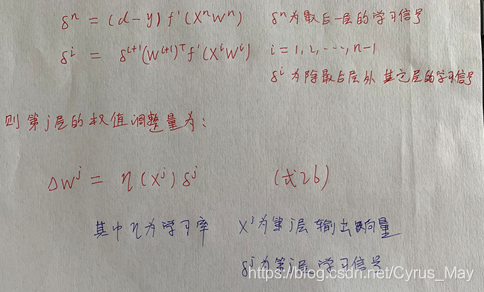 δⁿ = (d-y) f'(XⁿWⁿ)  δⁿ为最后一层的学习信号
δⁱ = δⁱ⁺¹(Wⁱ⁺¹)ᵀf'(XⁱWⁱ)  i = 1, 2, ..., n-1
δⁱ为除最后层外 其它层的学习信号
则第j层的权值调整量为:
ΔWʲ = η(Xʲ)δʲ  (式26)
其中η为学习率  Xʲ为第j层输出向量
δʲ为第j层学习信号
https://blog.csdn.net/Cyrus_May